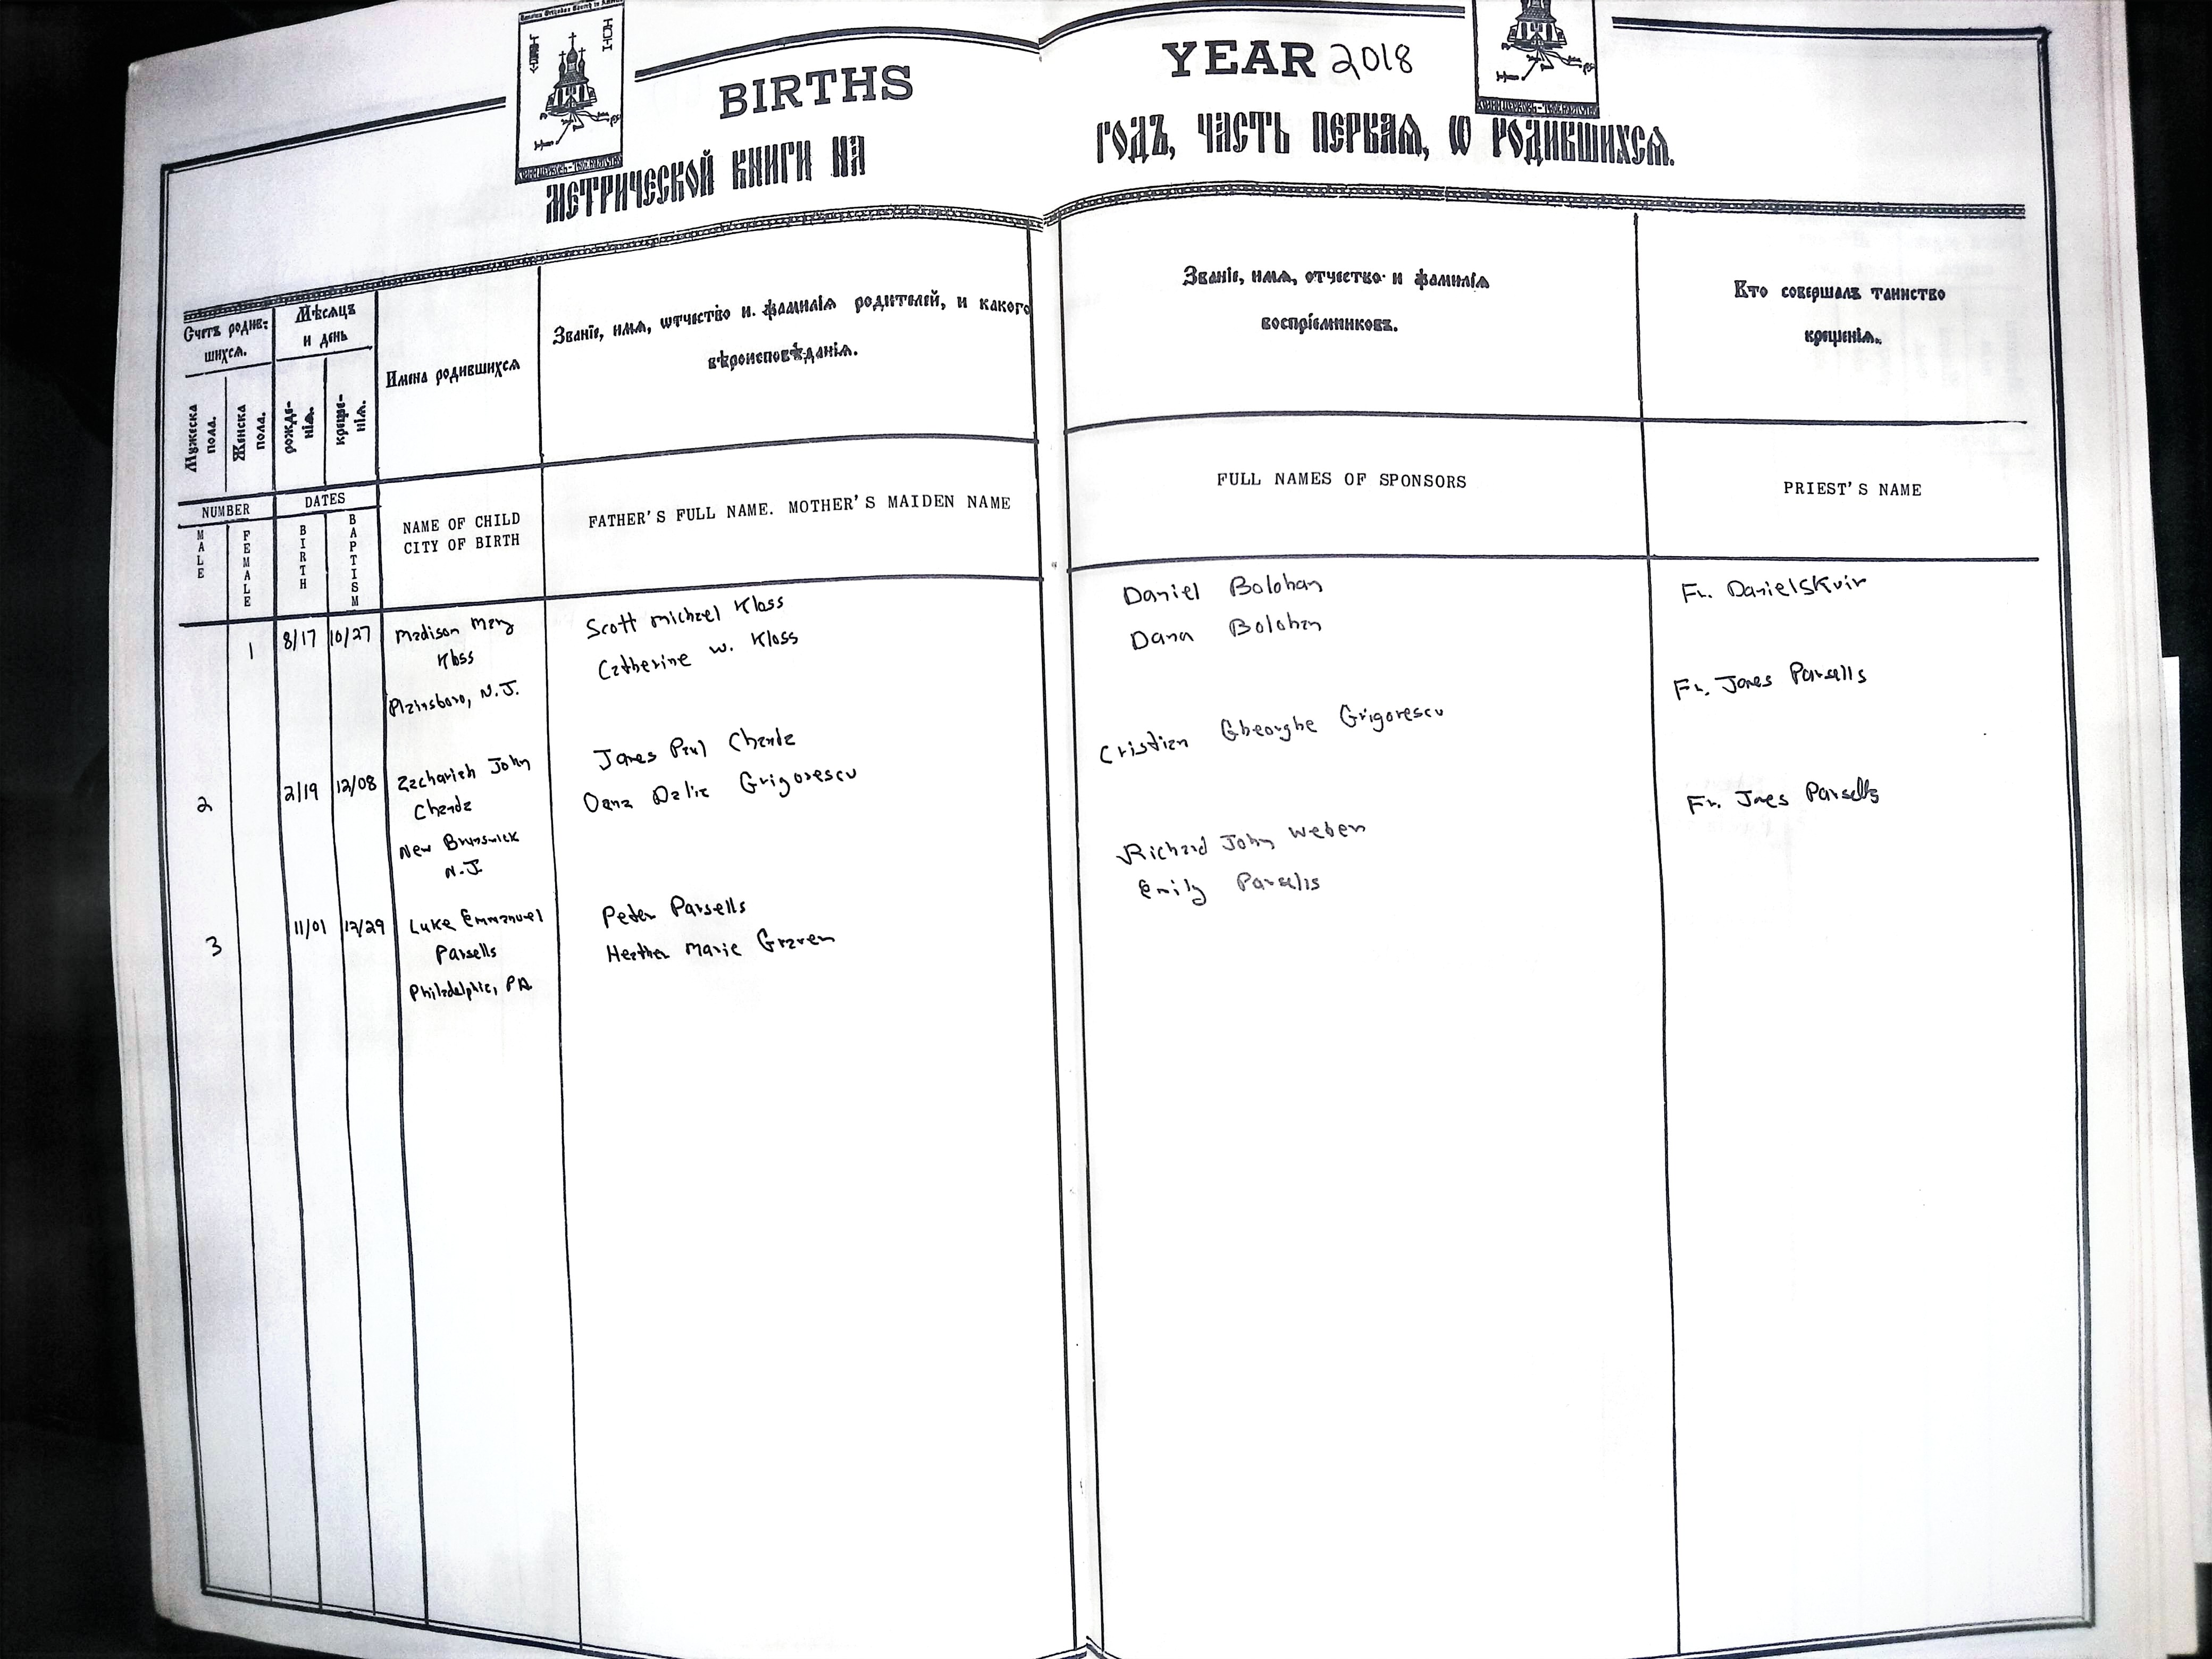 BIRTHS
YEAR 2018
МЕТРИЧЕСКОЙ КНИГИ НА
ГОДЪ, ЧАСТЬ ПЕРВАѦ, Ѡ РОДИВШИХСѦ.
Счетъ родив-
шихсѧ.
Мѣсѧцъ
и день
Мужеска
пола.
Женска
пола.
рожде-
нїѧ.
креще-
нїѧ.
Имена родившихсѧ
Званїе, имѧ, ѡтчество и. фамилїѧ родителей, и какого
вѣроисповѣданїѧ.
Званїе, имѧ, отчество и фамилїѧ
воспрїемниковъ.
Кто совершалъ таинство
крещенїѧ.
NUMBER
DATES
MALE
FEMALE
BIRTH
BAPTISM
NAME OF CHILD
CITY OF BIRTH
FATHER'S FULL NAME. MOTHER'S MAIDEN NAME
FULL NAMES OF SPONSORS
PRIEST'S NAME
1 8/17 10/27 Madison Mary
Kloss
Plainsboro, N.J.
Scott Michael Kloss
Catherine W. Kloss
Daniel Bolohan
Dana Bolohan
Fr. Daniel Skvir
2 2/19 12/08 Zachariah John
Chanda
New Brunswick
N.J.
James Paul Chanda
Oana Dalia Grigorescu
Cristian Gheorghe Grigorescu
Fr. James Parsells
3 11/01 12/29 Luke Emmanuel
Parsells
Philadelphia, PA
Peter Parsells
Heather Marie Graven
Richard John Weber
Emily Parsells
Fr. James Parsells